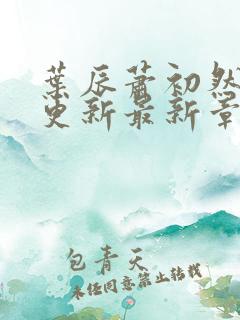 葉辰蕭初然
更新最新章
包青天
未經同意禁止轉載